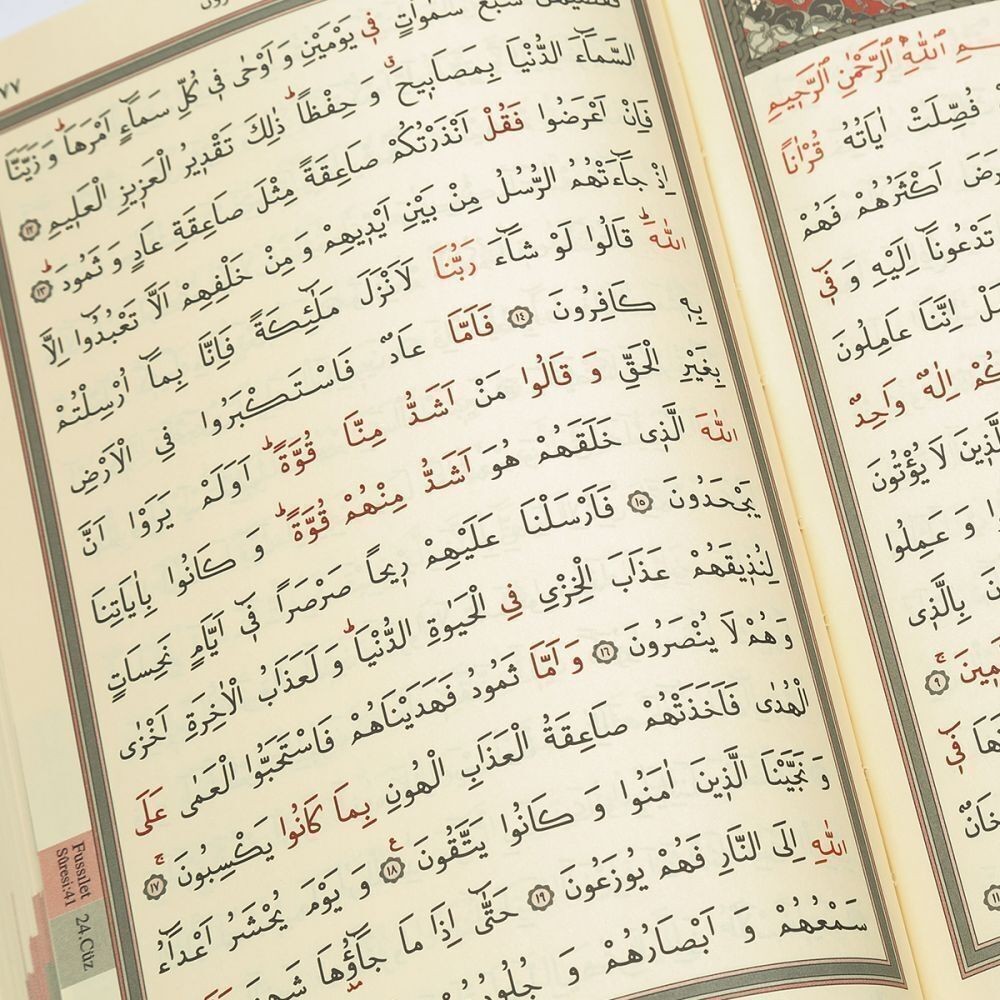 اللّٰهِ الرَّحْمٰنِ الرَّحٖيمِ
فُصِّلَتْ اٰيَاتُهُ قُرْاٰناً
اَكْثَرُهُمْ فَهُمْ
تَدْعُونَٓا اِلَيْهِ وَ فٖٓى
اِنَّنَا عَامِلُونَ
اِلٰهٌ وَاحِدٌ
لَا يُؤْتُونَ
وَ عَمِلُوا
بِالَّذٖى
٩
فٖٓى
٧٧
سَمٰوَاتٍ فٖى يَوْمَيْنِ وَ اَوْحٰى فٖى كُلِّ سَمَٓاءٍ اَمْرَهَاؕ وَ زَيَّنَّا
السَّمَٓاءَ الدُّنْيَا بِمَصَابٖيحَۗ وَ حِفْظاًؕ ذٰلِكَ تَقْدٖيرُ الْعَزٖيزِ الْعَلٖيمِ ١٢
فَاِنْ اَعْرَضُوا فَقُلْ اَنْذَرْتُكُمْ صَاعِقَةً مِثْلَ صَاعِقَةِ عَادٍ وَ ثَمُودَؕ ١٣
اِذْ جَٓاءَتْهُمُ الرُّسُلُ مِنْ بَيْنِ اَيْدٖيهِمْ وَ مِنْ خَلْفِهِمْ اَلَّا تَعْبُدُٓوا اِلَّا
اللّٰهَؕ قَالُوا لَوْ شَٓاءَ رَبُّنَا لَاَنْزَلَ مَلٰٓئِكَةً فَاِنَّا بِمَٓا اُرْسِلْتُمْ
بِهٖ كَافِرُونَ ١٤ فَاَمَّا عَادٌ فَاسْتَكْبَرُوا فِى الْاَرْضِ
بِغَيْرِ الْحَقِّ وَ قَالُوا مَنْ اَشَدُّ مِنَّا قُوَّةًؕ اَوَلَمْ يَرَوْا اَنَّ
اللّٰهَ الَّذٖى خَلَقَهُمْ هُوَ اَشَدُّ مِنْهُمْ قُوَّةًؕ وَ كَانُوا بِاٰيَاتِنَا
يَجْحَدُونَ ١٥ فَاَرْسَلْنَا عَلَيْهِمْ رٖيحاً صَرْصَراً فٖٓى اَيَّامٍ نَحِسَاتٍ
لِنُذٖيقَهُمْ عَذَابَ الْخِزْىِ فِى الْحَيٰوةِ الدُّنْيَاؕ وَ لَعَذَابُ الْاٰخِرَةِ اَخْزٰى
وَ هُمْ لَا يُنْصَرُونَ ١٦ وَ اَمَّا ثَمُودُ فَهَدَيْنَاهُمْ فَاسْتَحَبُّوا الْعَمٰى عَلَى
الْهُدٰى فَاَخَذَتْهُمْ صَاعِقَةُ الْعَذَابِ الْهُونِ بِمَا كَانُوا يَكْسِبُونَۚ ١٧
وَ نَجَّيْنَا الَّذٖينَ اٰمَنُوا وَ كَانُوا يَتَّقُونَ ١٨ وَ يَوْمَ يُحْشَرُ اَعْدَٓاءُ
اللّٰهِ اِلَى النَّارِ فَهُمْ يُوزَعُونَ ١٩ حَتّٰٓى اِذَا مَا جَٓاؤُهَا
سَمْعُهُمْ وَ اَبْصَارُهُمْ وَ
Fussılet
Sûresi:41
24.Cüz